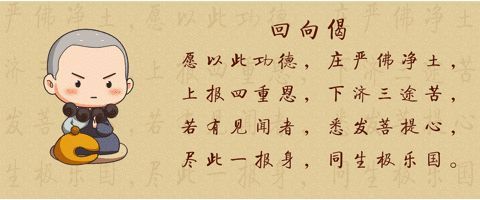 回向偈
愿以此功德，庄严佛净土，
上报四重恩，下济三途苦，
若有见闻者，悉发菩提心，
尽此一报身，同生极乐国。